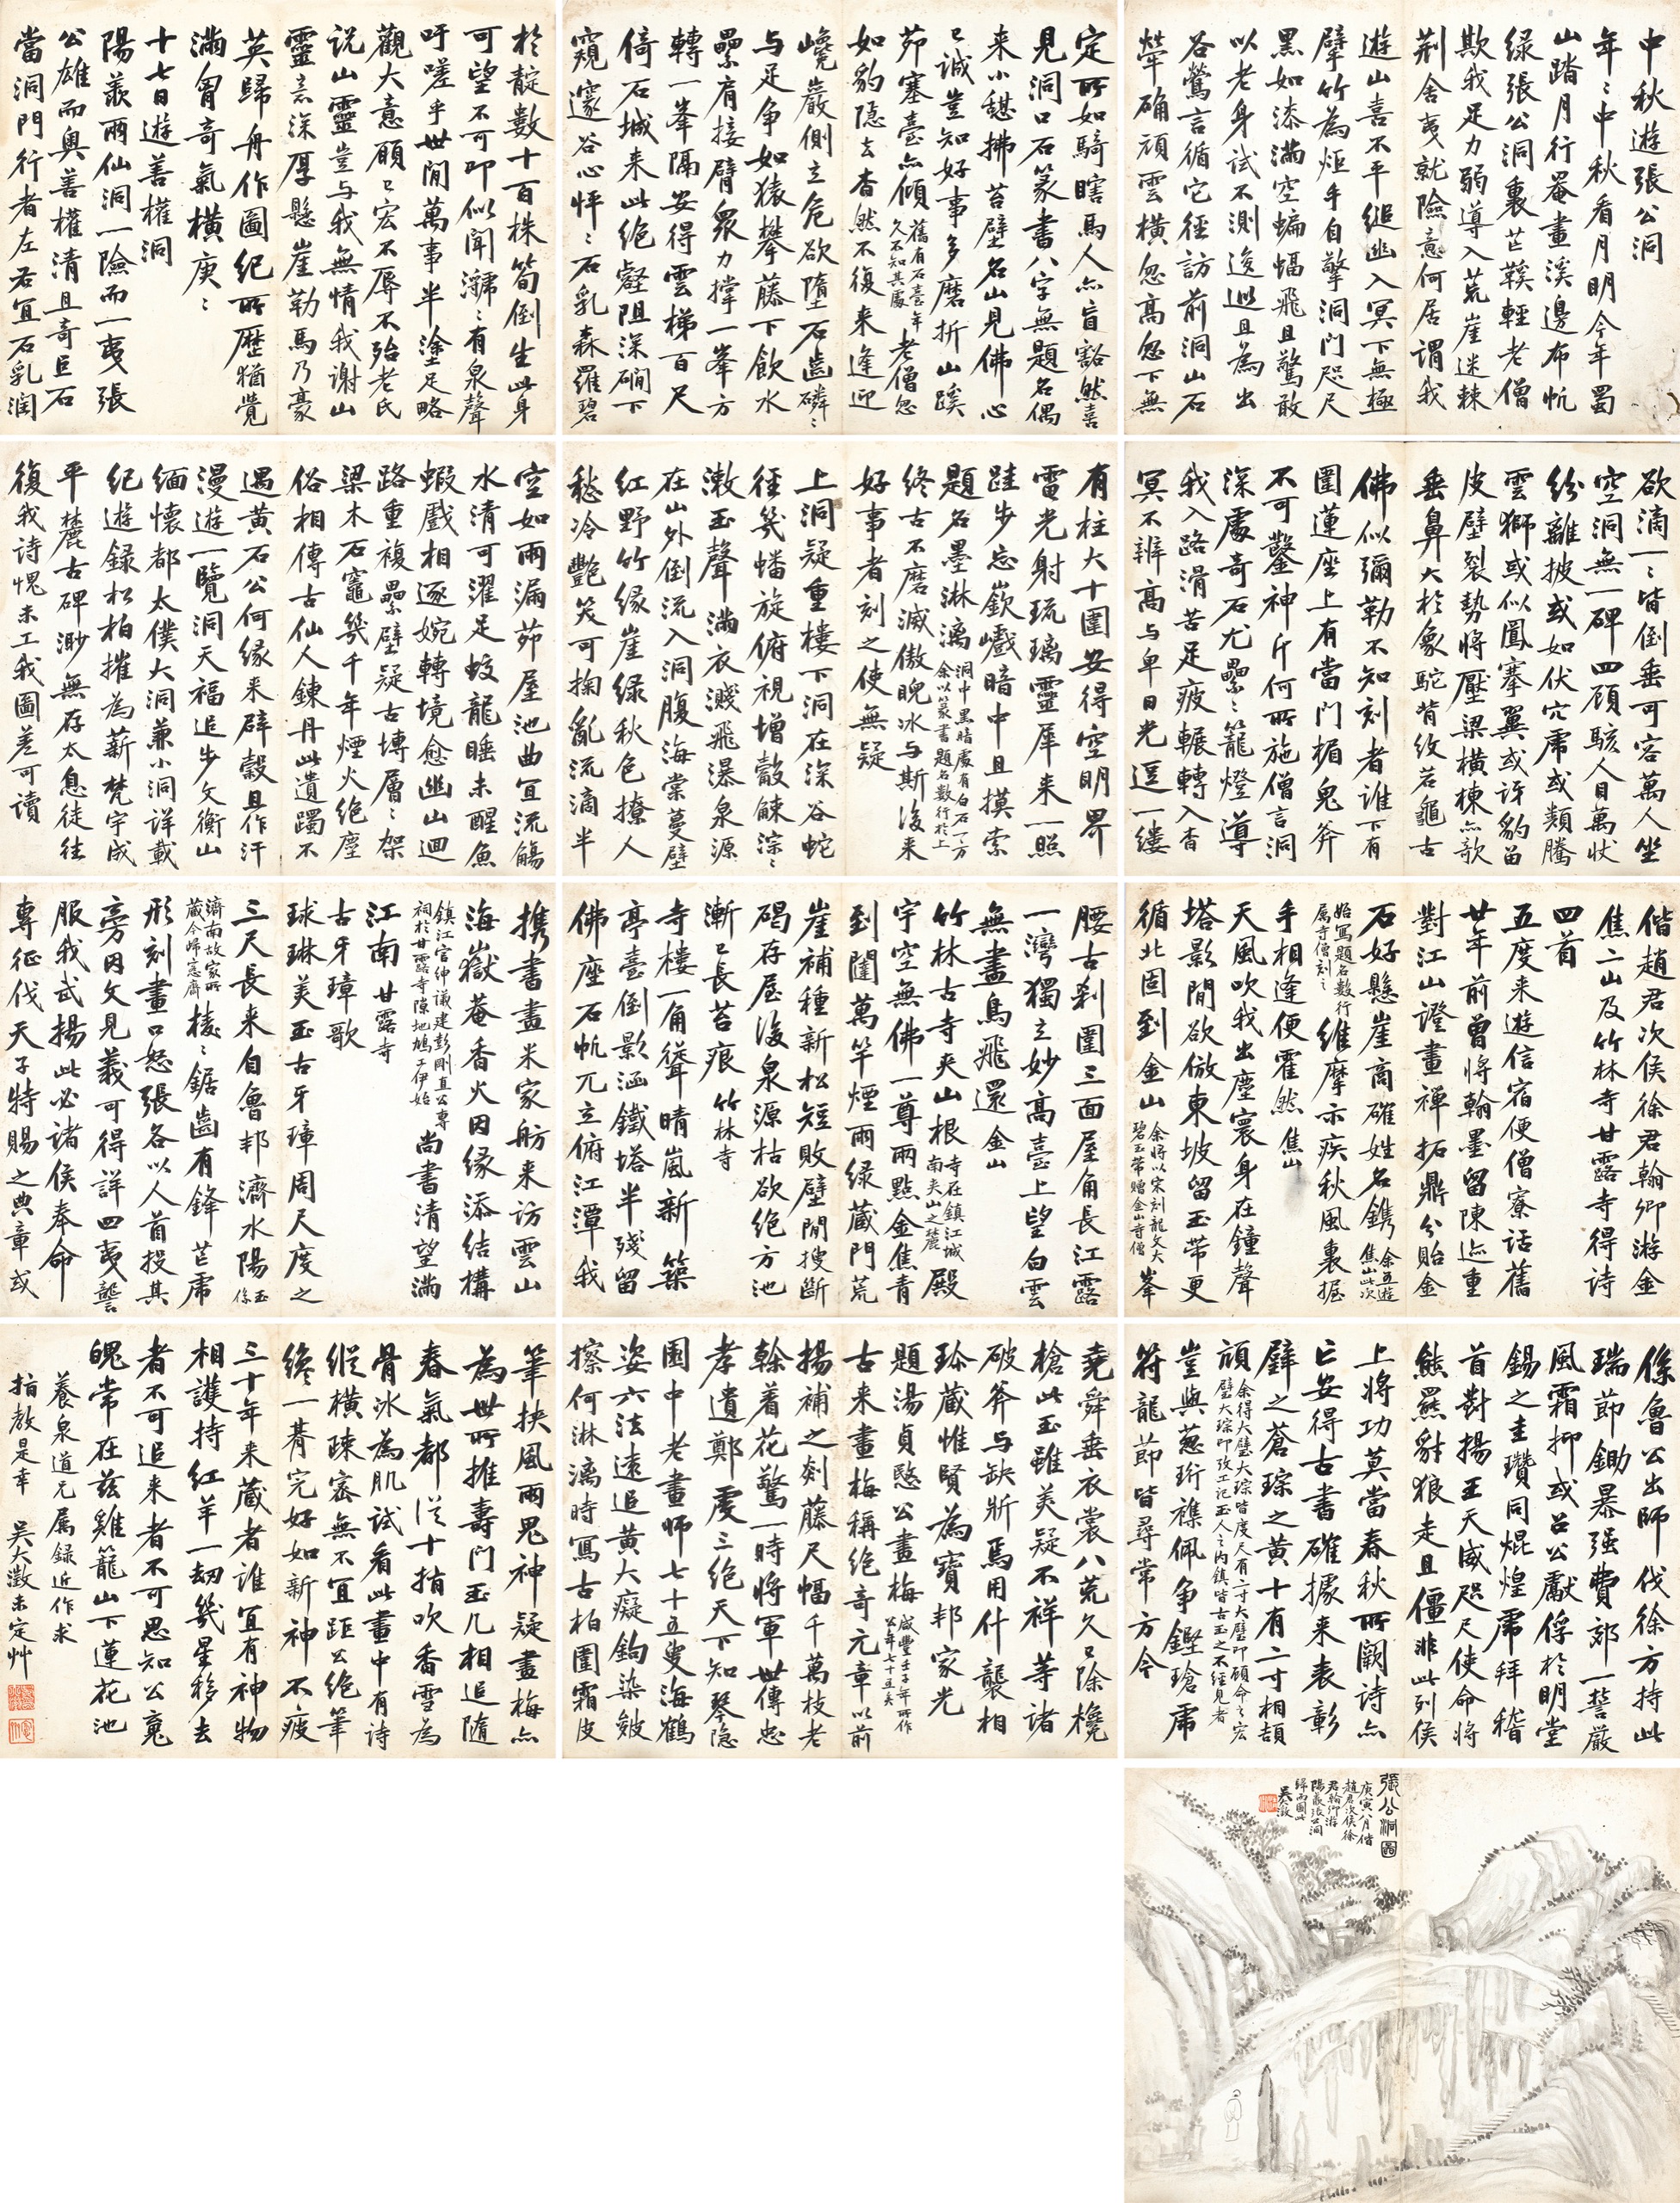 中秋遊張公洞
年年中秋看月明今年蜀
山踏月行罨畫溪邊布帆
綠張公洞裏芒鞵輕老僧
欺我足力弱導入荒崖迷棘
荆舍夷就險意何居謂我
遊山喜不平縋幽入冥下無極
擘竹為炬手自擎洞門咫尺
黑如漆滿空蝙蝠飛且驚敢
以老身試不測逡巡且為出
谷鶯言循它徑訪前洞山石
犖确頑雲橫忽高忽下無
定所如騎瞎馬人亦盲豁然喜
見洞口石篆書八字無題名偶
來小憩拂苔壁名山見佛心
已誠豈知好事多磨折山蹊
茆塞臺亦傾舊有石臺年久不知其處老僧忽
如豹隱去杳然不復來逢迎
巉巖側立危欲墮石齒磷磷
与足爭如猿攀藤下飲水
纍肩接臂眾力撐一峯方
轉一峯隔安得雲梯百尺
倚石城来此绝壑阻深磵下
窺邃谷心怦怦石乳森羅碧
於靛數十百株筍倒生此身
可望不可即似聞㶁㶁有泉聲
吁嗟乎世閒萬事半塗足略
觀大意願已宏不辱不殆老氏
说山靈豈与我無情我謝山
靈意深厚懸崖勒馬乃豪
英歸舟作圖紀所歷猶覺
滿胷奇氣橫庚庚
十七日遊善權洞
陽羨兩仙洞一險而一夷張
公雄而奥善權清且奇巨石
當洞門行者左右宜石乳润
欲滴一一皆倒垂可容萬人坐
空洞無一碑四顧駭人目萬狀
紛離披或如伏穴虎或類騰
雲獅或似鳳搴翼或訝豹留
皮壁裂勢將壓梁橫棟亦欹
垂鼻大於象駝背紋若龜古
佛似彌勒不知刻者誰下有
圍蓮座上有當門楣鬼斧
不可鑿神斤何所施僧言洞
深處奇石尤纍纍籠燈導
我入路滑苦足疲輾轉入杳
冥不辨高与卑日光逗一缕
有柱大十圍安得空明界
電光射琉璃靈犀来一照
跬步忘嶔巇暗中且摸索
題名墨淋漓洞中黑暗處有白石一方余以篆書題名數行於上
终古不磨滅傲睨冰与斯後来
好事者刻之使無疑
上洞疑重樓下洞在深谷蛇
徑幾蟠旋俯視增觳觫淙淙
漱玉聲滿衣濺飛瀑泉源
在山外倒流入洞腹海棠蔓壁
红野竹缘崖绿秋色撩人
愁冷艷笑可掬亂流滴半
空如雨漏茆屋池曲宜流觴
水清可濯足蛟龍睡未醒魚
蝦戲相逐婉轉境愈幽山迴
路重複纍壁疑古塼層層架
梁木石竈幾千年煙火绝塵
俗相傳古仙人鍊丹此遺躅不
遇黄石公何缘来辟穀且作汗
漫遊一覽洞天福追步文衡山
缅懷都太僕大洞兼小洞详載
纪遊録松柏摧為薪梵宇成
平麓古碑渺無存太息徒往
復我詩愧未工我圖差可讀
偕趙君次侯徐君翰卿游金
焦二山及竹林寺甘露寺得诗
四首
五度来遊信宿便僧寮话舊
廿年前曾將翰墨留陳迹重
對江山證畫禅拓鼎分貽金
石好懸崖高確姓名鐫余五遊焦山此次
始寫題名數行属寺僧刻之維摩示疾秋風裏握
手相逢便霍然焦山
天風吹我出塵寰身在鐘聲
塔影閒欲倣東坡留玉带更
循北固到金山余將以宋刻龍文大碧玉带赠金山寺僧峯
腰古刹圍三面屋角長江露
一灣獨立妙高臺上望白雲
無盡鳥飛還金山
竹林古寺夾山根寺在鎮江城南夾山之麓殿
宇空無佛一尊兩點金焦青
到闥萬竿煙雨绿藏門荒
崖補種新松短敗壁閒搜斷
碣存屋後泉源枯欲绝方池
漸已長苔痕竹林寺
寺樓一角聳晴嵐新築
亭臺倒影涵鐵塔半殘留
佛座石帆兀立俯江潭我
携書畫米家舫来访雲山
海嶽菴香火因缘添结構
鎮江官绅議建彭剛直公專祠於甘露寺隙地鳩工伊始尚書清望滿
江南甘露寺
古牙璋歌
球琳美玉古牙璋周尺度之
三尺長来自魯邦濟水陽玉係
濟南故家所藏今歸愙齋棱棱鋸齒有鋒芒虎
形刻畫口怒張各以人首投其
旁因文見義可得詳四夷讋
服我武揚此必诸侯奉命
專征伐天子特賜之典章或
係魯公出師伐徐方持此
瑞節鋤暴强費郊一誓嚴
風霜抑或召公獻俘於明堂
錫之圭瓒同焜煌虎拜稽
首對揚王天威咫尺使命將
熊羆豺狼走且僵非此列侯
上將功莫當春秋所阙詩亦
亡安得古書確據来表彰
璧之蒼琮之黄十有二寸相頡
頏余得大璧大琮皆度尺有二寸大璧即顧命之宏璧大琮即攷工記玉人之内鎮皆古玉之不经見者
豈與蔥珩襍佩争鏗瑲虎
符龍節皆尋常方今
堯舜垂衣裳八荒久已除欃
槍此玉雖美疑不祥等诸
破斧与缺斨焉用什襲相
珍藏惟賢為寶邦家光
題湯貞愍公畫梅咸豐壬子年所作公年七十五矣
古来畫梅稱绝奇元章以前
揚補之剡藤尺幅千萬枝老
榦着花驚一時將軍世傳忠
孝遺鄭虔三绝天下知琴隐
園中老畫師七十五叟海鶴
姿六法遠追黄大癡鉤染皴
擦何淋漓時寫古柏圍霜皮
筆挾風雨鬼神疑畫梅亦
為世所推壽門玉几相追隨
春氣都從十指吹香雪為
骨冰為肌試看此畫中有诗
縱横疎密無不宜距公绝筆
纔一朞完好如新神不疲
三十年来藏者谁宜有神物
相護持红羊一劫幾星移去
者不可追来者不可思知公寃
魄常在兹雞籠山下蓮花池
養泉道兄属録近作求
指教是幸 吴大澂未定艸
張公洞圖
庚寅八月偕
趙君次侯徐
君翰卿游
陽羨張公洞
歸而圖此
吴大澂